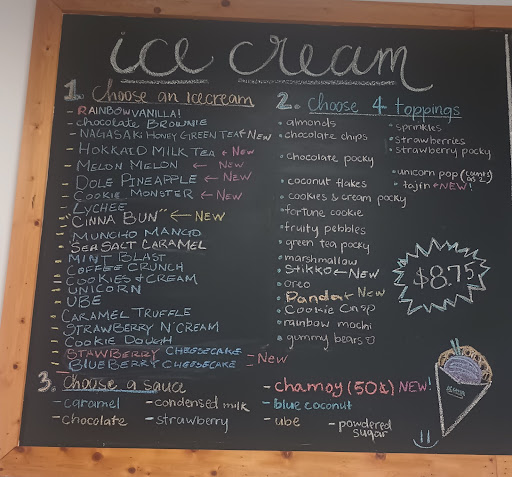 ice cream
1. Choose an icecream
- RAINBOW VANILLA!
- Chocolate BROWNIE
- NAGASAKI HONEY GREEN TEA ← New
- HOKKAID MILK TEA ← New
- MELON MELON ← New
- DOLE PINEAPPLE ← New
- COOKIE MONSTER ← New
- LYCHEE
- "CINNA BUN" ← NEW
- MUNCHO MANGO
- SEA SALT CARAMEL
- MINT BLAST
- COFFEE CRUNCH
- COOKIES & CREAM
- UNICORN
- UBE
- CARAMEL TRUFFLE
- STRAWBERRY N' CREAM
- COOKIE DOUGH
- STAWBERRY CHEESECAKE
- BLUEBERRY CHEESECAKE - New
2. Choose 4 toppings
• almonds
• chocolate chips
• chocolate pocky
• coconut flakes
• cookies & cream pocky
• fortune cookie
• fruity pebbles
• green tea pocky
• marshmallow
• Stikko ← New
• oreo
• Panda New
• Cookie Crisp
• rainbow mochi
• gummy bears
• sprinkles
• strawberries
• strawberry pocky
• unicorn pop (counts as 2)
• tajin ← NEW!
$8.75
3. Choose a sauce
- caramel
- chocolate
- condensed milk
- strawberry
- chamoy (50¢) NEW!
- blue coconut
- ube
- powdered sugar